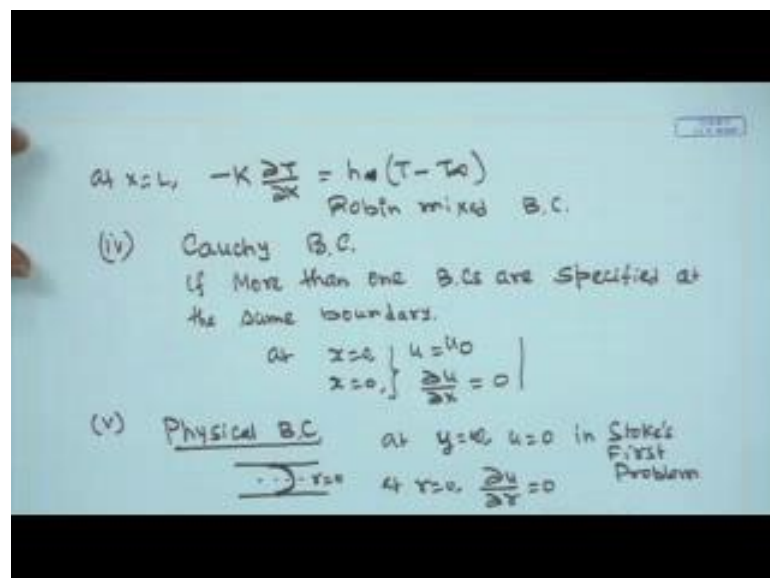 at x=L, -K ∂T/∂x = h (T-T∞)
Robin mixed B.C.
(iv) Cauchy B.C.
if More than one B.Cs are specified at
the same boundary.
at x=0, } u=u0
x=0, } ∂u/∂x = 0
(v) Physical B.C. at y=∞, u=0 in Stoke's
First
Problem
r=0 at r=0, ∂u/∂r =0